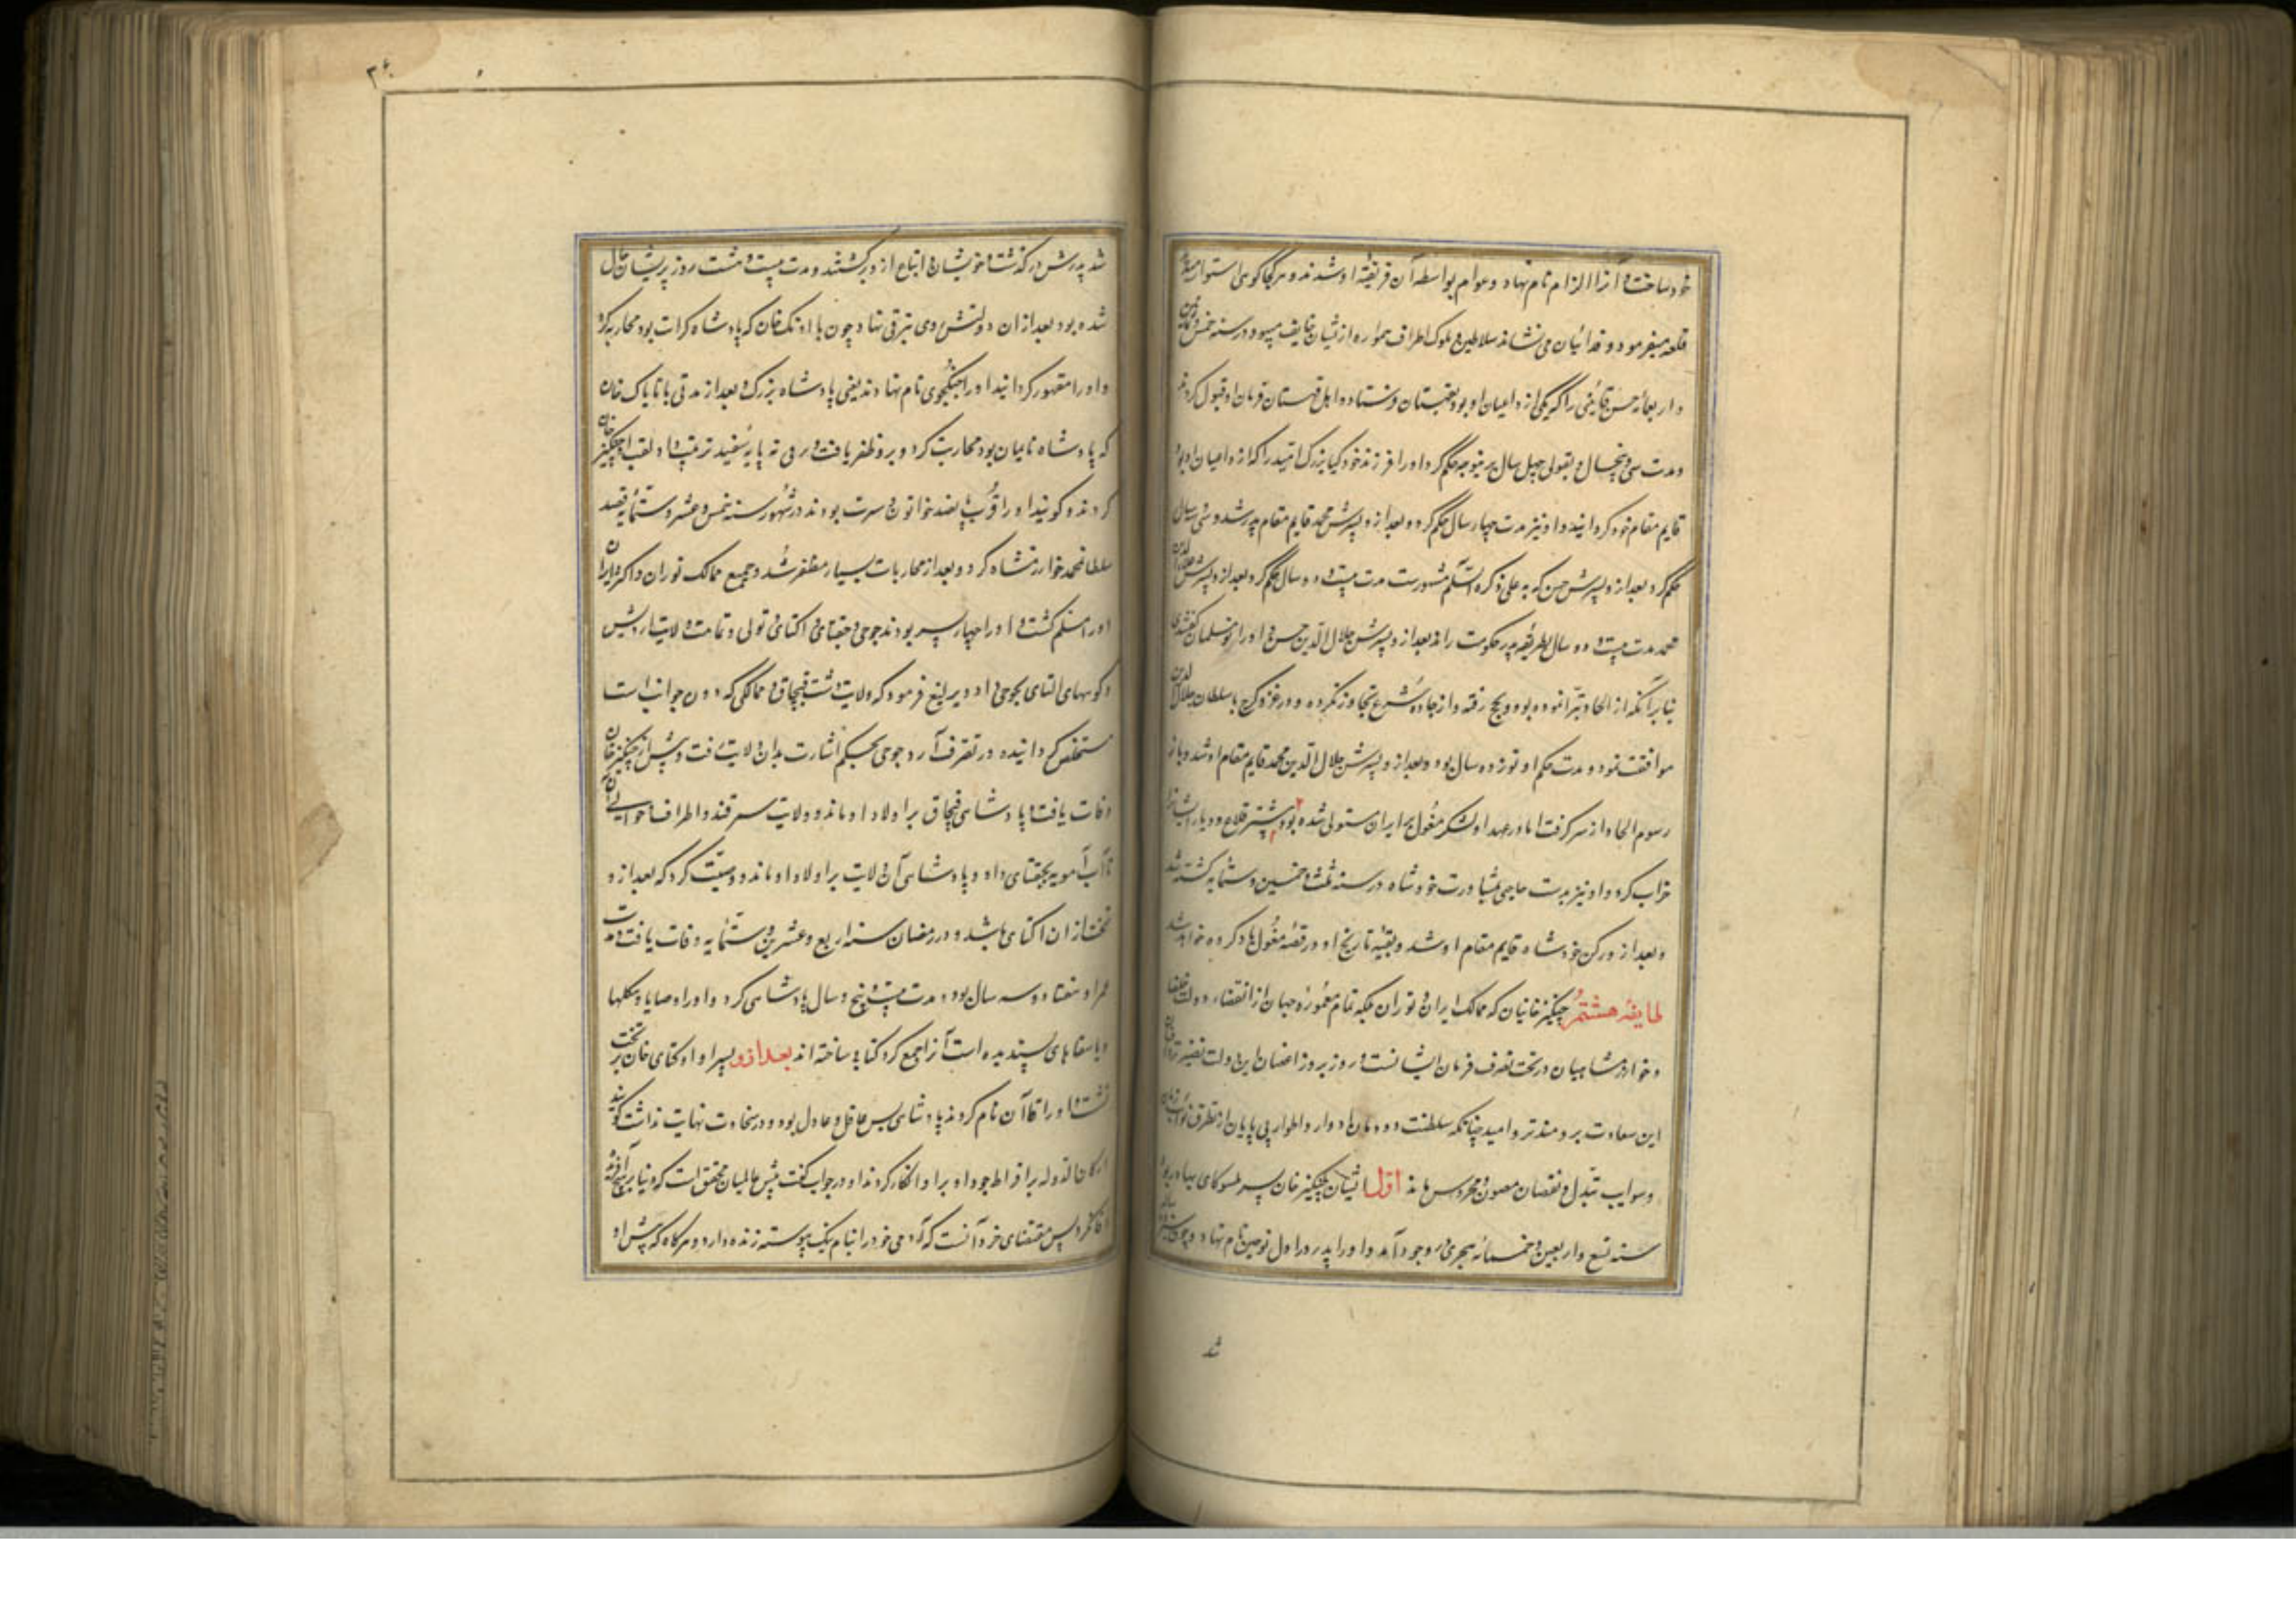 خود ساخت و آنرا الزام نام نهاد و عوام بواسطه آن فریفته او شدند و هر کجا کوهی استوار میدید
قلعه میفرمود و فدائیان می نشاند سلاطین و ملوک اطراف همواره ازیشان خایف میبودند در سنه خمس
و اربعمائه حسن قاینی را که یکی از داعیان او بود بقهستان فرستاد و اهل قهستان فرمان او قبول کردند
و مدت سی و پنج سال و بقولی چهل سال برینوجه حکم کرد و او را فرزند خود کیا بزرک امید را که از داعیان او بود
قایم مقام خود کردانید و او نیز مدت چهار سال حکم کرد و بعد ازو پسرش محمد قایم مقام پدر شد و سی سال
حکم کرد بعد ازو پسرش حسن که به علی ذکره السلم مشهورست مدت بیست و دو سال حکم کرد بعد ازو پسرش علاء الدین
محمد مدت بیست و دو سال بطریقه پدر حکومت راند بعد ازو پسرش جلال الدین حسن و او را نومسلمان کفتندی
بنابر آنکه از الحاد تبرا نموده بود و بحج رفته و از جاده شرع تجاوز نکرده و در غزو کرج با سلطان جلال الدین
موافقت نمود و مدت حکم او نوزده سال بود و بعد ازو پسرش جلال الدین محمد قایم مقام او شد و باز
رسوم الحاد از سر کرفت اما در عهد او لشکر مغول بر ایران مستولی شده بود و بیشتر قلاع و دیار ایشانرا
خراب کرد و او نیز بدست حاجبی بمشاورت خورشاه در سنه ثلث و خمسین و ستمایه کشته شد
و بعد ازو رکن خورشاه قایم مقام او شد و بقیه تاریخ او در قصه مغول یاد کرده خواهد شد
طایفه هشتم چنکیزخانیان که ممالک ایران و توران بلکه تمام معموره جهان از انقضاء دولت خلفا
و خوارزمشاهیان در تحت تصرف فرمان ایشانست و روز بروز اغصان این دولت نضیرتر و
این سعادت برومندتر و امید چنانکه سلطنت دودمان ادوار و اطوار بی پایان از تطرق نوایب زمان
و شوایب تبدل و نقصان مصون و محروس ماند اول ایشان چنکیزخان پسر یسوکای بهادر بود
سنه تسع و اربعین و خمسمائه هجری در وجود آمد و او را پدر در اول تموجین نام نهاد و چون
شد
۳۶۰
شد پدرش درکذشت و خویشان و اتباع ازو برکشتند و مدت بیست و هشت روز پریشان حال
شده بود بعد ازان دولتش روی بترقی نهاد چون با اونک خان که پادشاه کرات بود محاربه کرد
و او را مقهور کردانید او را جینکجوی نام نهادند یعنی پادشاه بزرک و بعد از مدتی با تایاک خان
که پادشاه نایمان بود محاربت کرد و برو ظفر یافت و در وی نه پایه سفید ترتیب داد لقب او چنکیز خان
کردند و کویند او را قرب پانصد خواتون و سریت بودند در شهور سنه خمس و عشر و ستمایه قصد
سلطان محمد خوارزمشاه کرد و بعد از محاربات بسیار مظفر شد و جمیع ممالک توران و اکثر ایران
او را مسلم کشت و او را چهار پسر بودند جوجی و جغتای و اکتای و تولی و تمامت ولایت اردیس
و کوههای التای بجوجی داد و یرلیغ فرمود که ولایت دشت قبچاق و ممالکی که درون جوانب است
مستخلص کردانیده در تصرف آرد جوجی بحکم اشارت بدان ولایت رفت و پیش از چنکیز خان
وفات یافت و پادشاهی قبچاق بر اولاد او ماند و ولایت سمرقند و اطراف و حوالی آن
تا آب آمویه بجغتای داد و پادشاهی آن ولایت بر اولاد او ماند و وصیت کرد که بعد ازو
تخت ازان اکتای باشد و در رمضان سنه اربع و عشرین و ستمایه وفات یافت و مدت
عمر او هفتاد و سه سال بود و مدت بیست و پنج سال پادشاهی کرد و او را وصایا و بیلکها
و یاساقهای پسندیده است آنرا جمع کرده کتابی ساخته اند بعد ازو پسر او اوکتای خان بر تخت
نشست و او را قاآن نام کردند پادشاهی بس عاقل و عادل بود و در سخاوت نهایت نداشت کویند
ارکان الدوله بر افراط جود او برو انکار کردند او در جواب کفت پیش عالمیان محقق است که دنیا بر هیچ آفریده
وفا نکرد پس مقتضای خرد آنست که آدمی خود را بنام نیک پیوسته زنده دارد و هرکاه که پیش او